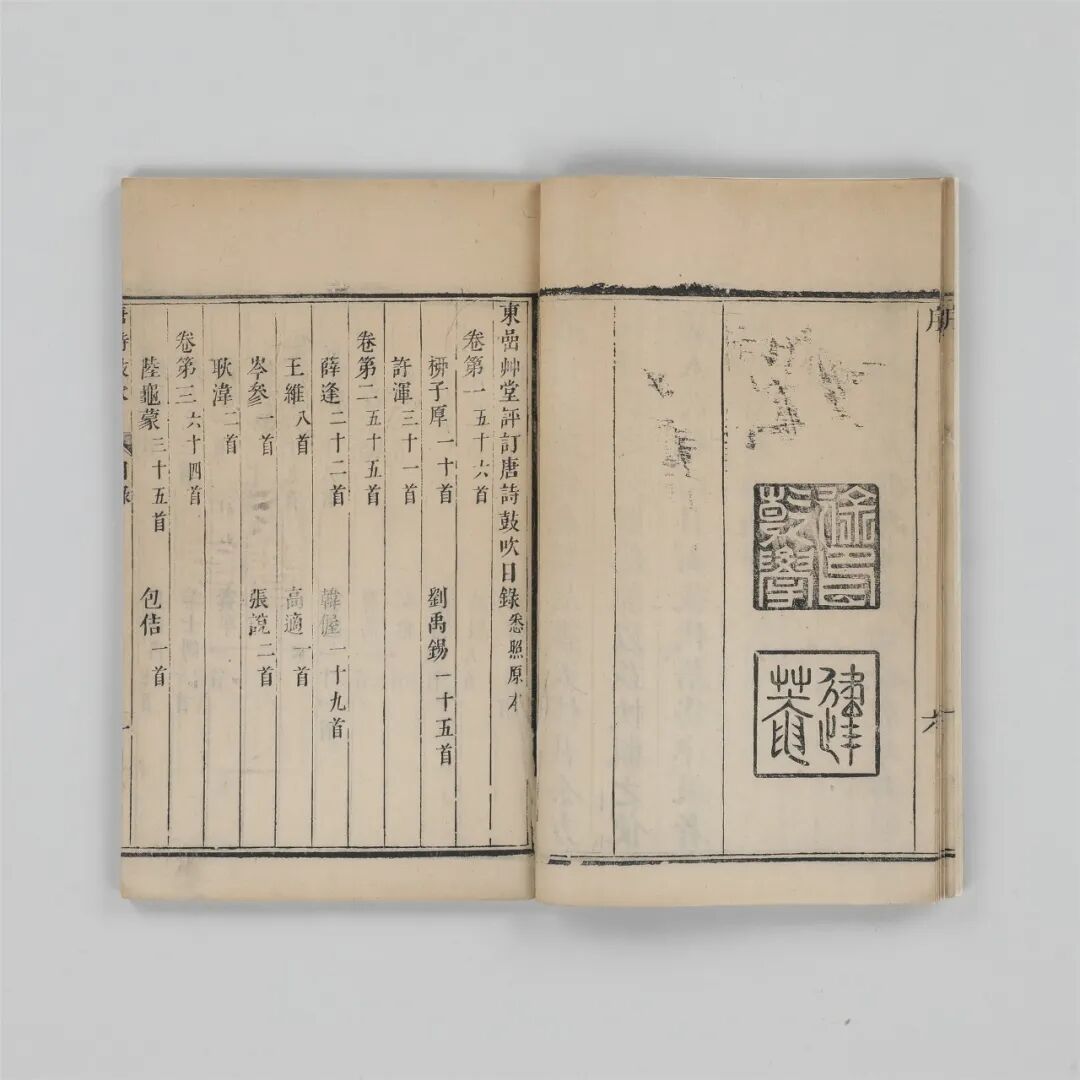 序
六
徐印
乾學
健
菴
東嵒艸堂評訂唐詩鼓吹目錄 悉照原本
卷第一 五十六首
桺子厚 一十首 劉禹錫 一十五首
許渾 三十一首
卷第二 五十五首
薛逢 二十二首 韓偓 一十九首
王維 八首 高適 一首
岑參 一首 張說 二首
耿湋 二首
卷第三 六十四首
陸龜蒙 三十五首 包佶 一首
唐詩鼓吹 目錄 一